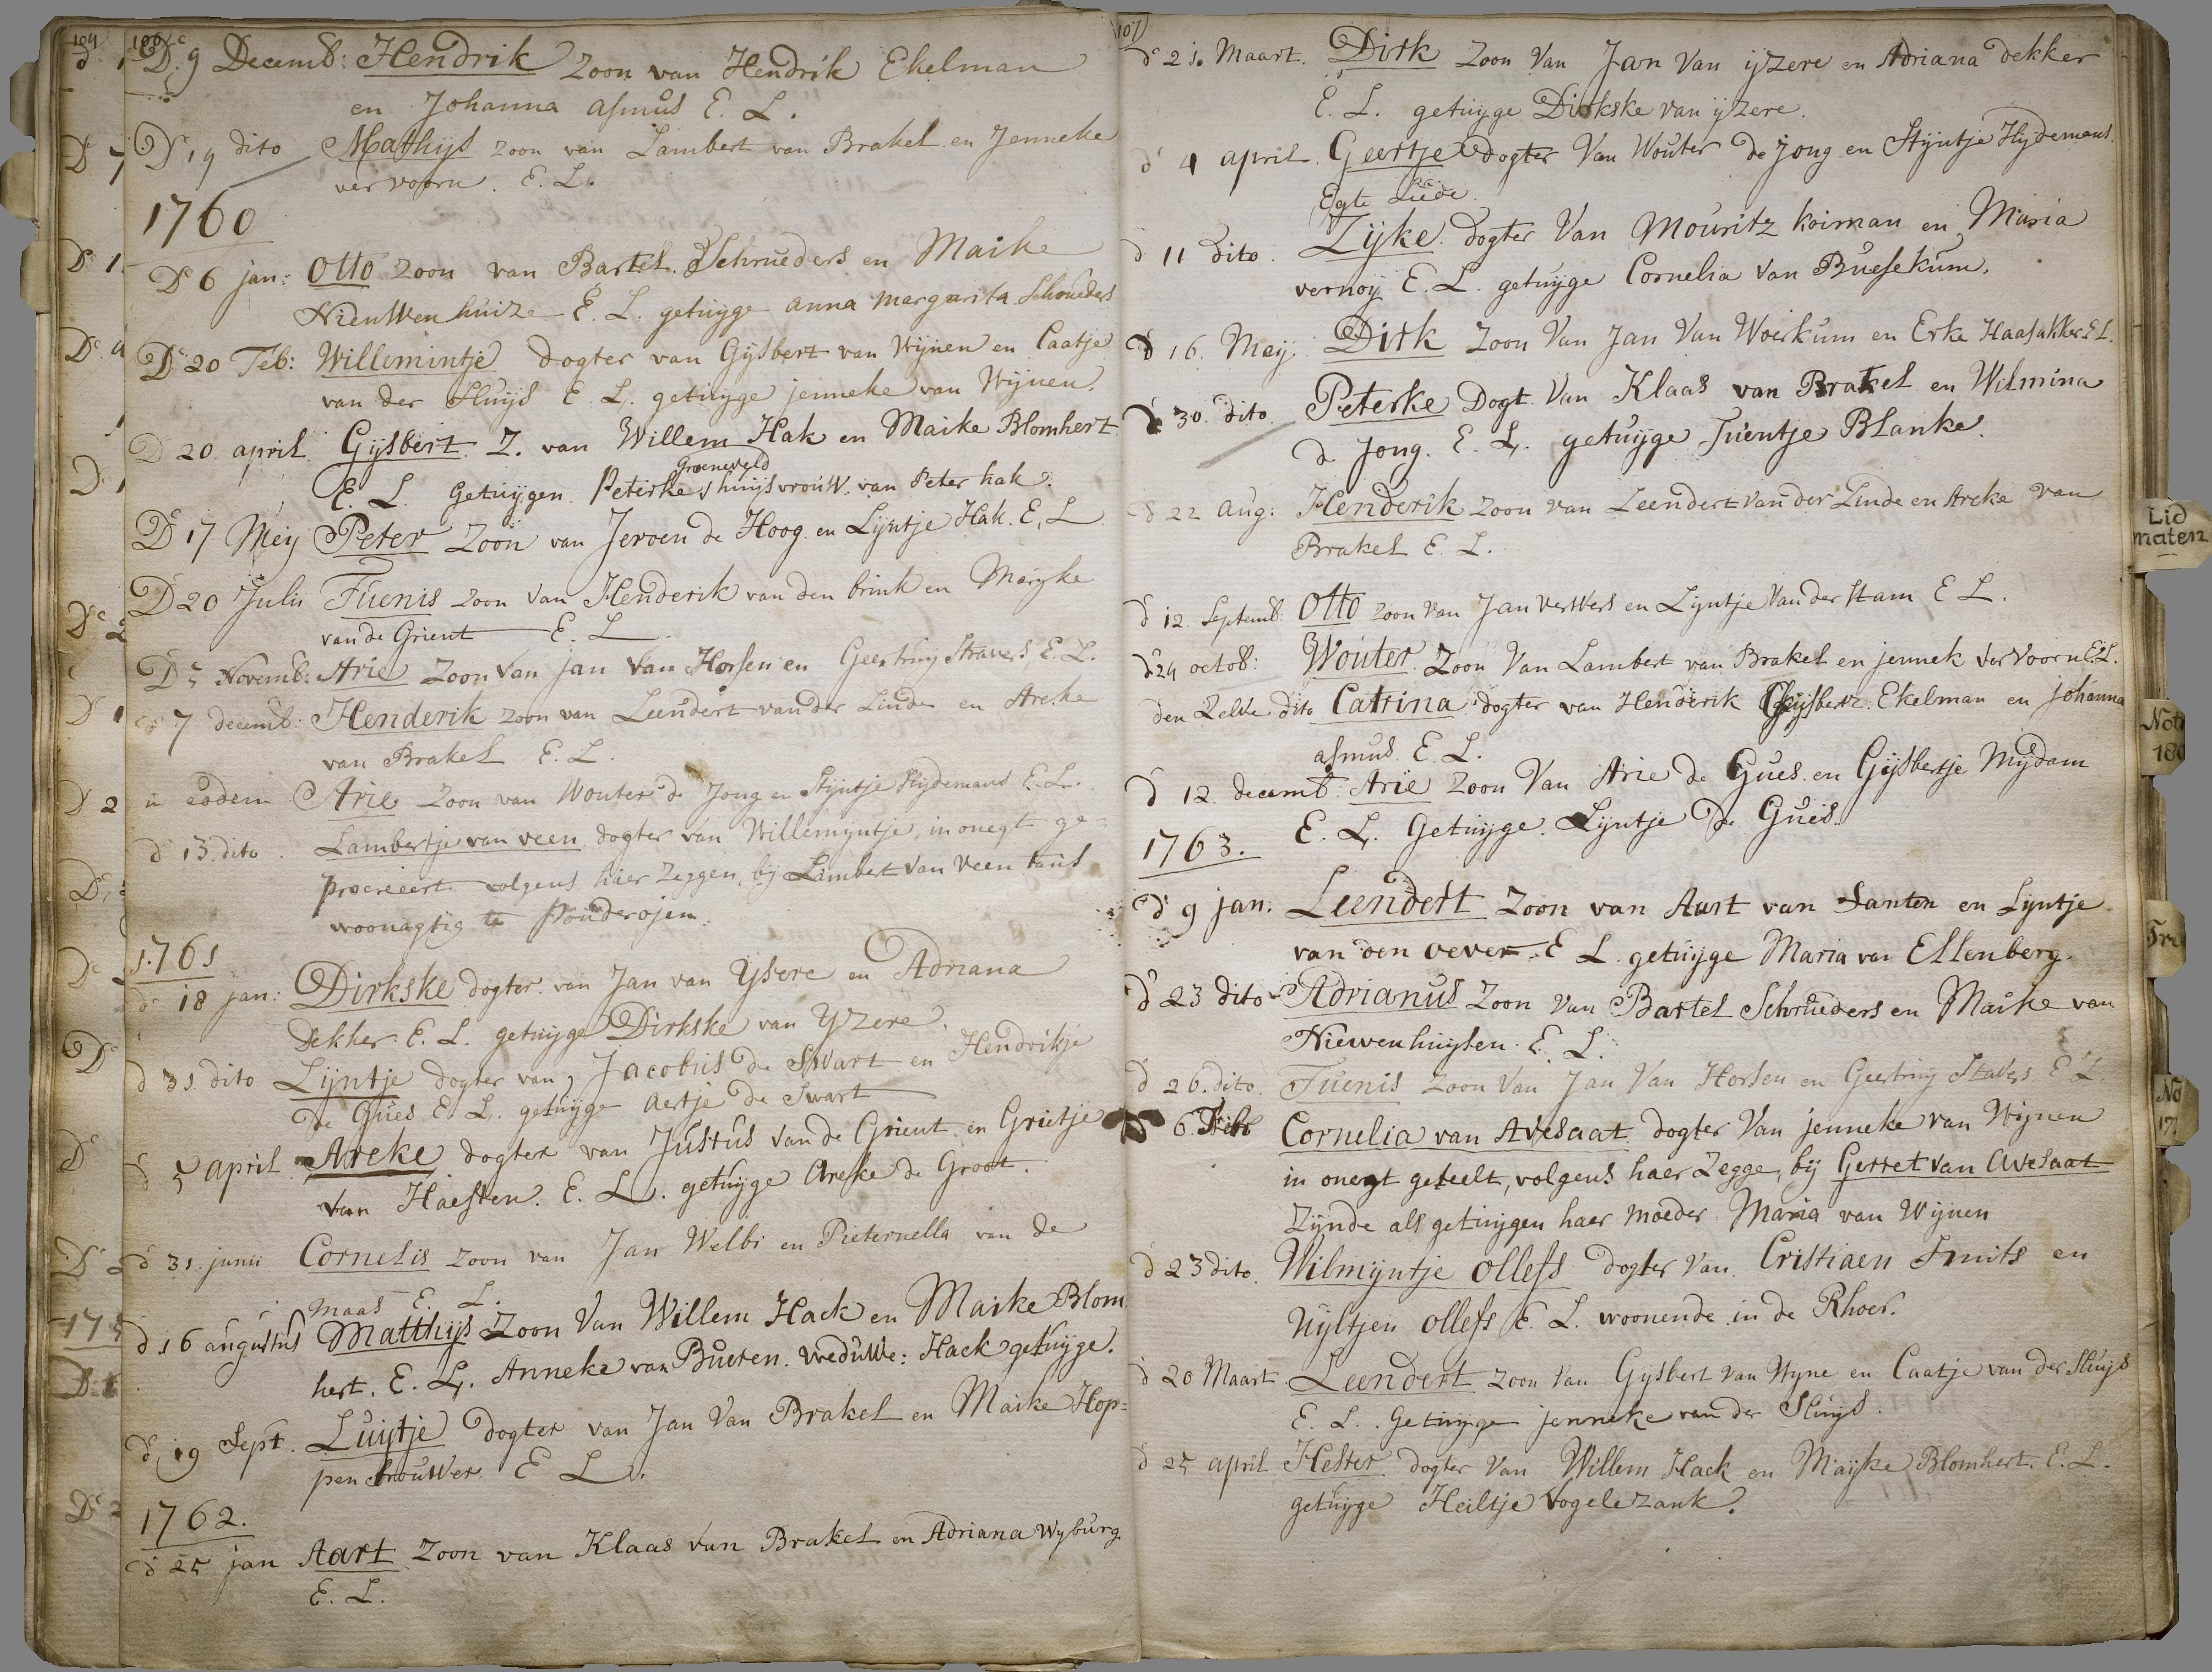 104
106
De 9 Decemb: Hendrik Zoon van Hendrik Ekelman
en Johanna asmus E. L.
De 19 dito Mathijs zoon van Lambert van Brakel en Jenneke
ver voorn. E. L.
1760
De 6 jan: Otto zoon van Bartel Schrueders en Maike
Nieuwenhuize E. L. getuijge anna margarita Schrueders
De 20 Feb: Willemintje dogter van Gijsbert van Wijnen en Caatje
van der Sluijs E. L. getuijge jenneke van Wijnen.
D 20 april Gijsbert. Z. van Willem Hak en Maike Blomhert
Groeneveld
E. L. Getuijgen. Peterke huijsvrouw. van Peter hak.
De 17 Meij Peter Zoon van Jeroen de Hoog en Lijntje Hak. E. L
De 20 Julii Tuenis zoon van Henderik van den brink en Marijke
van de Grient E. L
De 5 Novemb: Arie Zoon van jan van Horsen en Geertruij Stravers E. L.
de 7 decemb: Henderik zoon van Leendert van der Linde en Areke
van Brakel E. L.
in eodem Arie zoon van Wouter de Jong en Stijntje Hijdemans E. L.
d 13 dito. Lambertje van veen dogter van Willemijntje, in onegt ge
procrieert volgens haer zeggen, bij Lambert van Veen tans
woonagtig te Pouderojen.
1761
de 18 jan: Dirkske dogter van Jan van IJsere en Adriana
Dekker. E. L. getuijge Dirkske van IJzere.
d 31 dito Lijntje dogter van Jacobus de Swart en Hendrikje
de Gues E. L. getuijge aertje de Swart
d 5 april Areke dogter van Justus van de Grient en Grietje
van Haeften. E. L. getuijge Areke de Groot.
d 31 junii Cornelis zoon van Jan Welbi en Pieternella van de
maas E. L.
d 16 augustus Matthijs Zoon van Willem Hack en Maike Blom
hert. E. L. Anneke van Bueren. weduwe: Hack getuijge.
d 19 Sept. Luijtje dogter van Jan van Brakel en Maike Hop=
pen brouwer E L.
1762.
d 25 jan Aart Zoon van Klaas van Brakel en Adriana Wyburg
E. L.
107
de 21. Maart. Dirk zoon van Jan van ijzere en Adriana dekker
E. L. getuijge Dirkske van ijzere.
d 4 april. Geertje dogter van Wouter de jong en Stijntje Hijdemans
Egte Liede.
d 11 dito. Zijke. dogter van Mouritz koiman en Maria
vernoij E. L. getuijge Cornelia van Buesekum.
d 16. Meij. Dirk Zoon van Jan van Woerkum en Erke Haasakker. E L.
d 30. dito. Peterke Dogt. van Klaas van Brakel en Wilmina
de Jong. E. L. getuijge Tuentje Blanke.
d 22 aug: Henderik zoon van Leendert van der Linde en Areke van
Brakel E. L.
d 12. Septemb: Otto zoon van Jan verwers en Lijntje van der Stam E L.
d 24 octob: Wouter. Zoon van Lambert van Brakel en jennek ver voorn E. L.
den zelve dito Catrina dogter van Henderik Gijsbertz. Ekelman en johanna
asmus E. L.
d 12. decemb: Arie zoon van Arie de Gues. en Gijsbertje Mijdam
E. L. Getuijge. Lijntje de Gues.
1763.
d 9 jan: Leendert Zoon van Aart van Santen en Lijntje
van den oever. E L. getuijge Maria van Ellenberg.
d 23 dito Adrianus Zoon van Bartel Schrueders en Maike van
Niewenhuijsen. E. L.
d 26. dito. Tuenis zoon van Jan van Horsen en Geertruij Stavers E L
6. Feb: Cornelia van Avesaat. dogter van jenneke van Wijnen
in onegt geteelt, volgens haer zegge, bij Gerret van Avesaat
Zijnde als getuijgen haer moeder Maria van Wijnen
d 23 dito. Wilmijntje ollefs dogter van Cristiaen Smits en
Nijltjen ollefs E. L. woonende in de Rhoer.
d 20 Maart Leendert zoon van Gijsbert van Wijne en Caatje van der Sluijs
E. L. Getuijge jenneke van der Sluijs.
d 25 april Hester dogter van Willem Hack en Maijke Blomhert. E. L.
getuijge Heiltje vogelezank.
Lid
maten